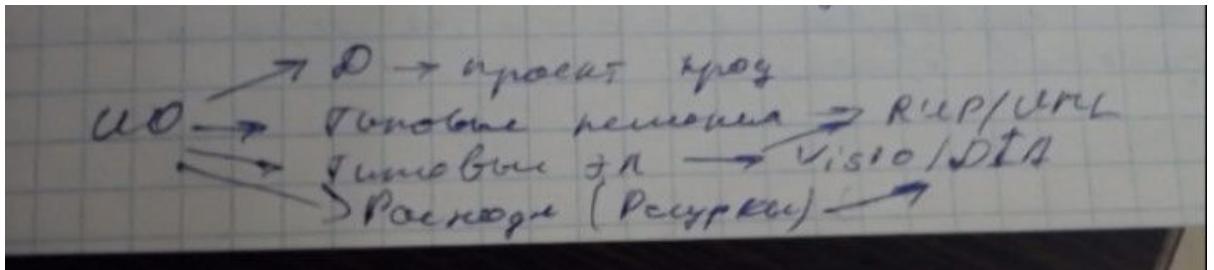 ИО → D → проект прод
→ Типовые решения → RUP/UML
→ Типовые эл → Visio/DIA
→ Расходы (Ресурсы) →